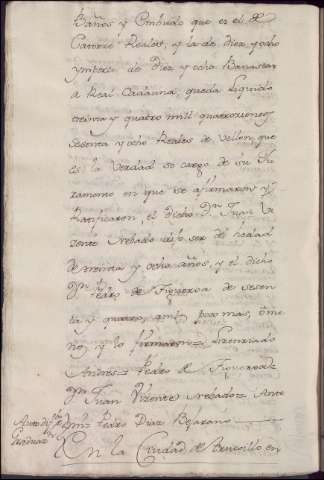 Baños y Embudo que es el de
Catorze Reales, y la de diez y ocho
ymporte de Diez y ocho Banastas
a Real Cadauna, queda liquido
treinta y quatro mill quatrozientos
sesenta y ocho Reales de Vellon que
es la Verdad so cargo de su Ju
ramento en que se afirmaron y
Ratificaron, el dicho Dn Juan Vi
zente Nebado dijo ser de hedad
de treinta y ocho años, y el dicho
Dn Pedro de Figueroa de sesen
ta y quatro, poco mas, ôme
nos, y lo firmaron = Lizenziado
Andres Pedro de Figueroa =
Juan Vizente Nebado = Ante
mi = Pedro Diaz Bejarano
Auto dse
Graduar
En la Ciudad de Bruxillo en